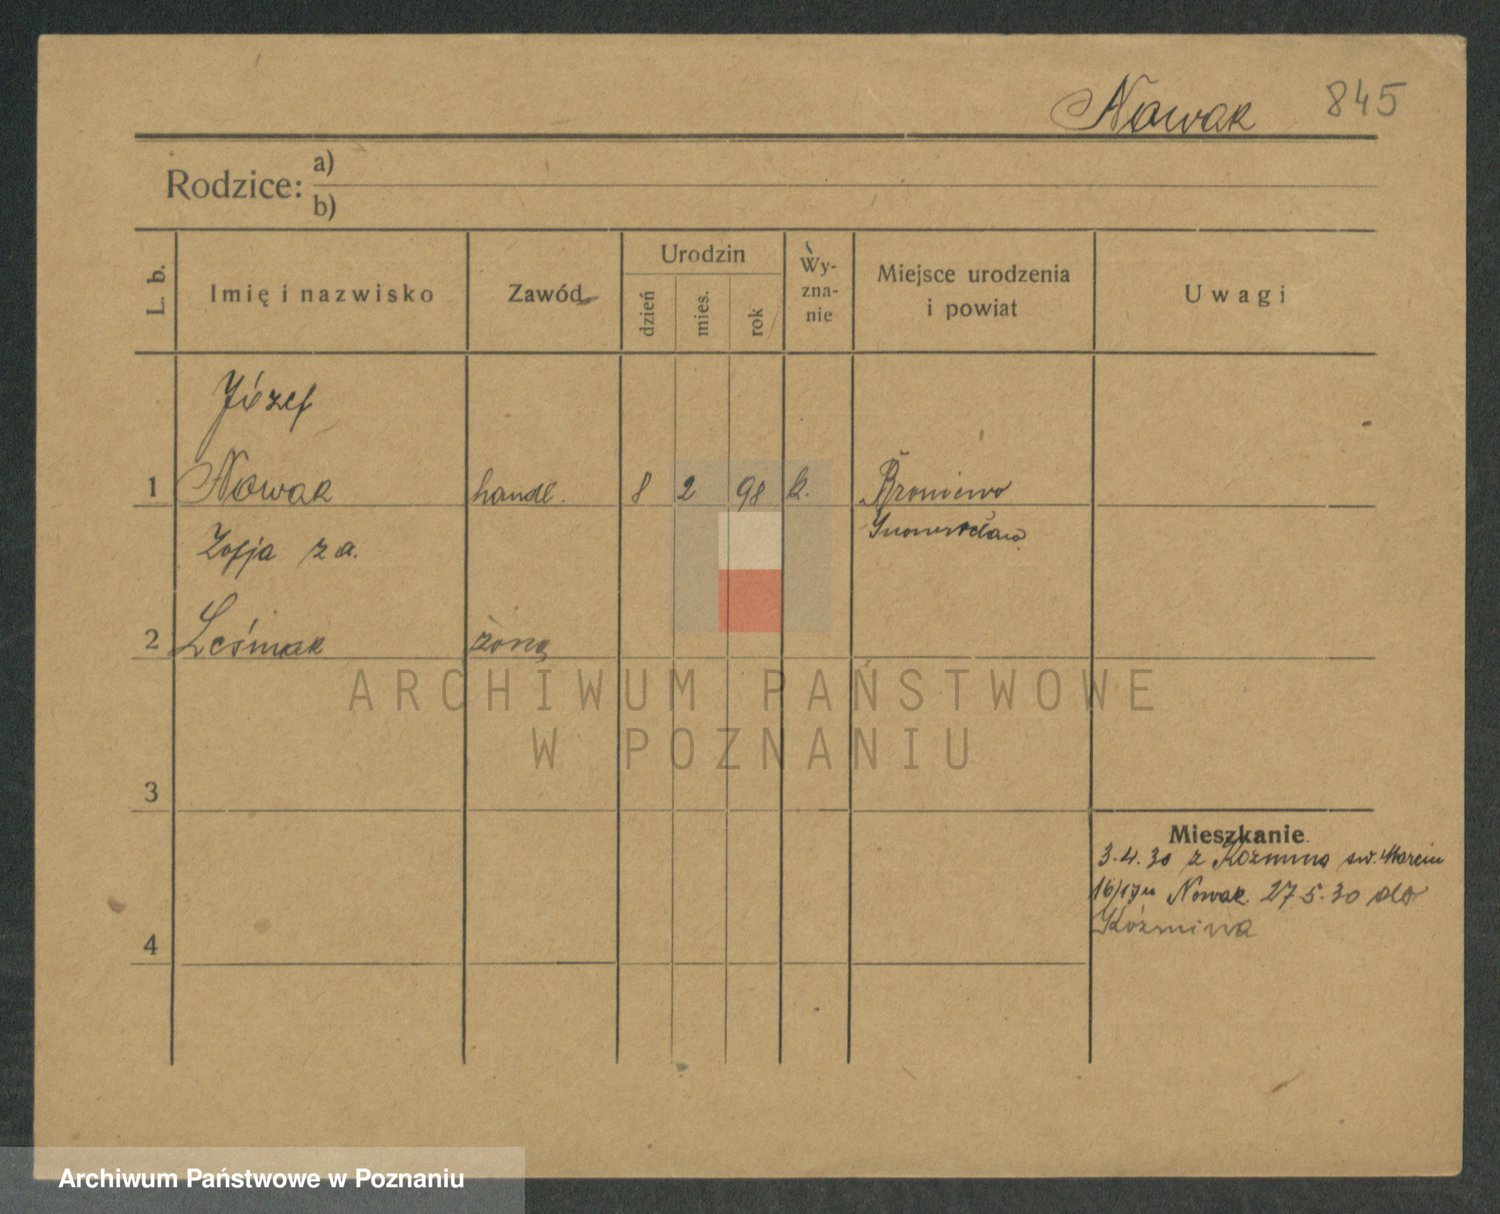 Nowak 845
Rodzice: a)
b)
L. b. Imię i nazwisko Zawód Urodzin dzień mies. rok Wy-zna-nie Miejsce urodzenia i powiat Uwagi
Józef
1 Nowak handl. 8 2 98 k. Broniewo
Inowrocław
Zofja z d.
2 Leśniak żona
ARCHIWUM PAŃSTWOWE
W POZNANIU
3
Mieszkanie
3.4.30 z Koźmina św. Marcin
16/17 Nowak. 27.5.30 do
Koźmina
4
Archiwum Państwowe w Poznaniu